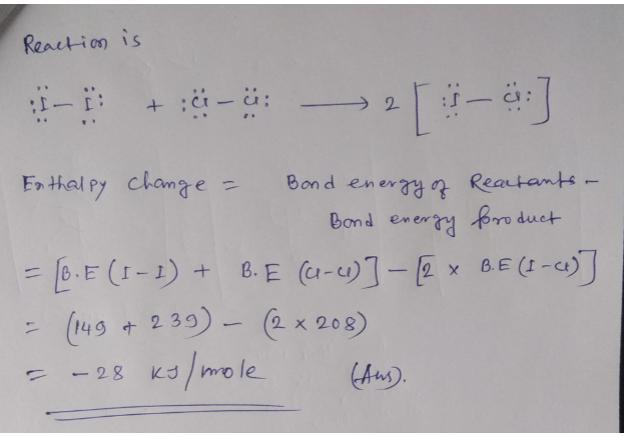 Reaction is
:Ï — Ï: + :Cl — Cl: ⟶ 2 [ :Ï — Cl: ]
Enthalpy change = Bond energy of Reactants -
Bond energy product
= [B.E (I-I) + B.E (Cl-Cl)] - [2 x B.E (I-Cl)]
= (149 + 239) - (2 x 208)
= -28 KJ/mole (Ans).